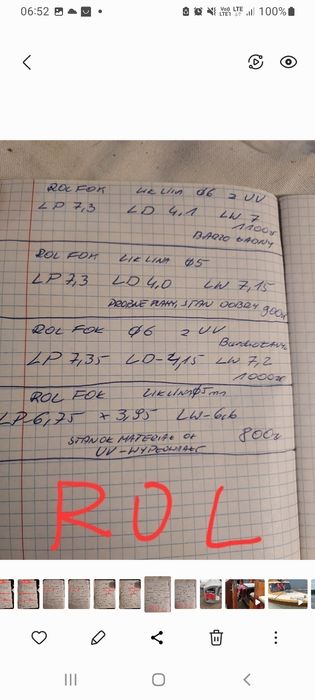 06:52
100%
ROL FOK LIK LINA Ø6 z UV
LP 7,3 LD 4,1 LW 7
1100zł
BARDZO ŁADNY
ROL FOK LIK LINA Ø5
LP 7,3 LD 4,0 LW 7,15
DROBNE PLAMY, STAN DOBRY 900zł
ROL FOK Ø6 z UV
LP 7,35 LD-4,15 LW 7,2
1000zł
ROL FOK LIK LINA Ø5mm
LP 6,75 x 3,95 LW-6,6
STAN OK MATERIAŁ OK 800zł
UV-WYPŁOWIAŁE
ROL